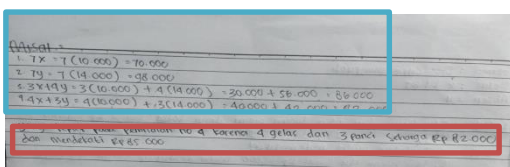 Misal :
1. 7x = 7 (10.000) = 70.000
2. 7y = 7 (14.000) = 98.000
3. 3x+4y = 3(10.000) + 4(14.000) = 30.000 + 56.000 = 86.000
4. 4x+3y = 4(10.000) + 3(14.000) = 40.000 + 42.000 = 82.000
no 4 karena 4 gelas dan 3 panci seharga Rp 82.000
dan mendekati Rp 85.000